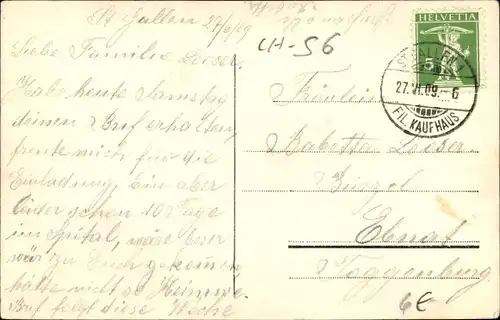 St Gallen 27/6/09
Liebe Familie Looser.
Habe heute Samstag
deinen Brief erhalten,
freute mich für die
Einladung, bin aber
leider schon 10 Tage
im Spital, wäre
zu Euch gekommen,
hätte nicht so Heimweh.
Brief folgt diese Woche
CH-56
HELVETIA
5
ST. GALLEN
27.VI.09.-6
FIL. KAUFHAUS
Fräulein
Babetta Looser
Ebnat
Toggenburg
6€